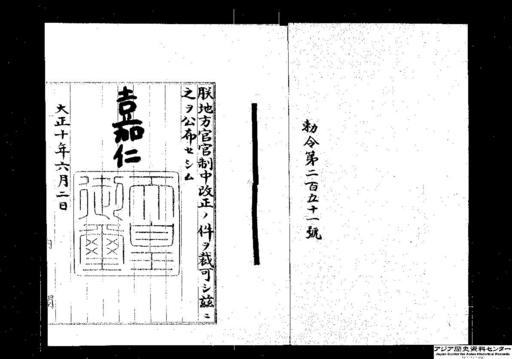 勅令第二百五十一號
朕地方官官制中改正ノ件ヲ裁可シ茲ニ
之ヲ公布セシム
嘉仁
天皇
御璽
大正十年六月二日
アジア歴史資料センター
Japan Center for Asian Historical Records